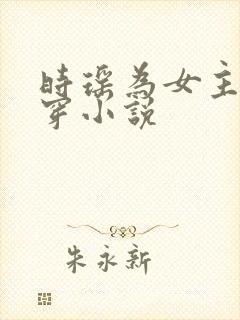 時瑶為女主
穿小說
朱永新